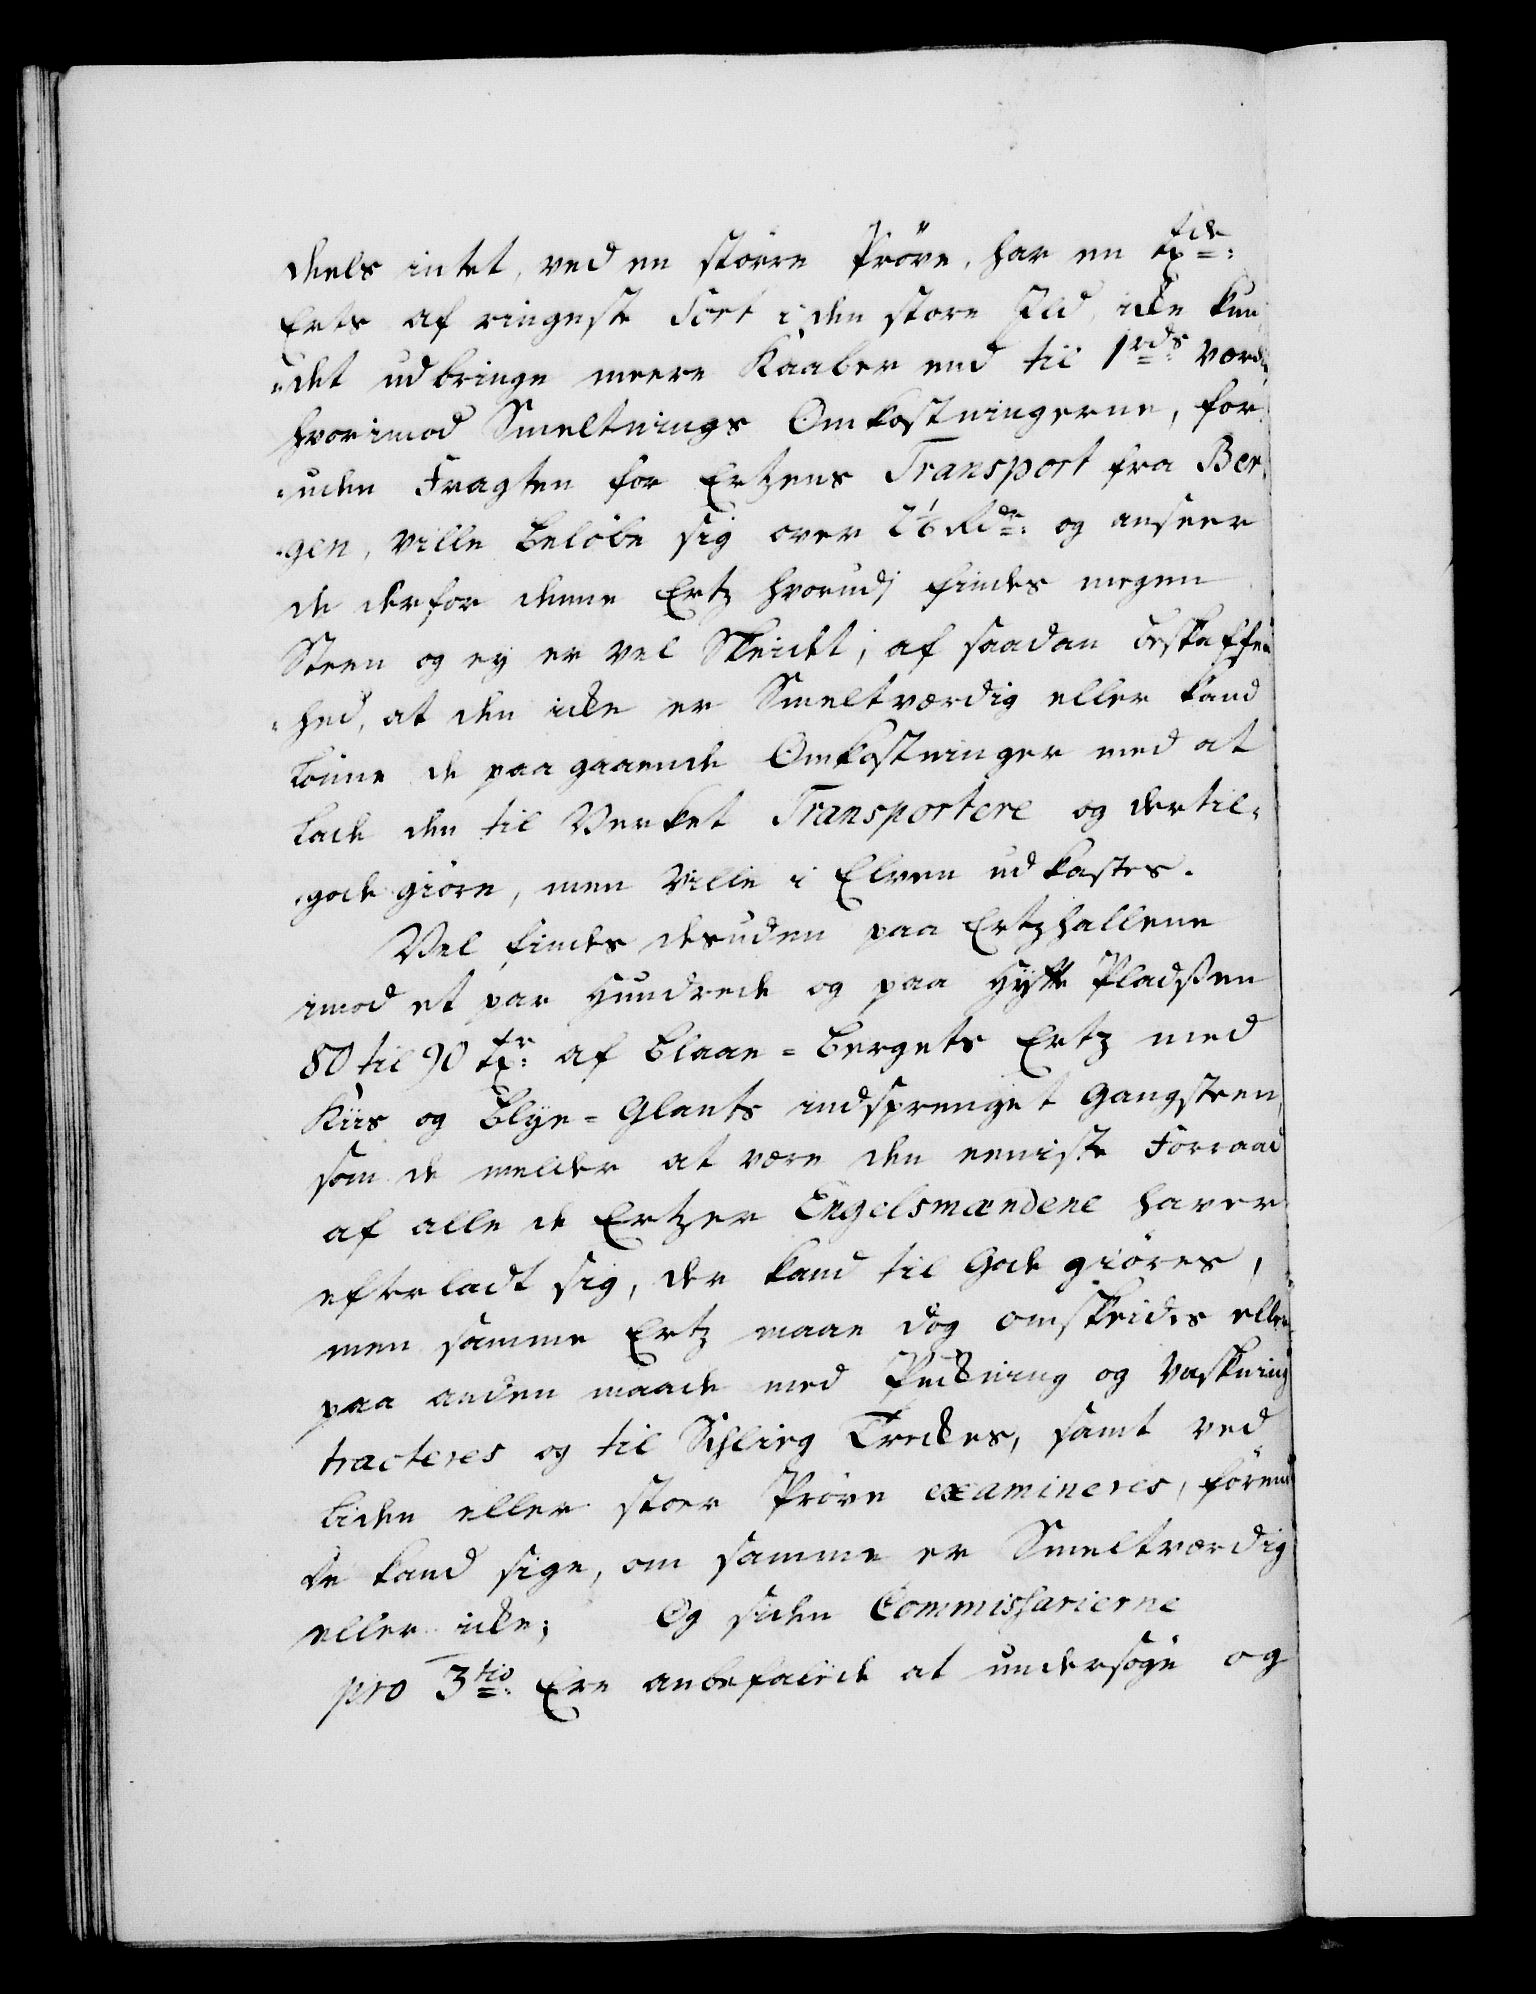 deels intet, ved en större Pröve, har en
Erts af ringeste Sort i den store Ild, icke kun
det udbringe meere Kaaber end til 1 rds værd
hvorimod Smeltnings Omkostningerne, for
uden Fragten for Ertzens Transport fra Ber
gen, ville beløbe sig over 2 1/6 Rdr: og anseer
de derfor denne Ertz hvorudj findes megen
Steen og ey er vel Skeidt, af saadan beskaffen
hed, at den icke er Smeltværdig eller kand
lönne de paagaaende Omkostninger med at
lade den til Verket Transportere og dertil
gode giöre, men ville i Elven udkastes.
Vel findes desuden paa Ertzhallene
imod et par Hundrede og paa Hytte Pladssen
80 til 90 tr: af Blaae-Bergets Ertz med
Kiis og Blye-Glants indsprenget Gangsteen,
som de melder at være den eeniste Forraad
af alle de Ertzer Engelsmændene haver
efterladt sig, der kand til Gode giöres,
men samme Ertz maae dog omskeides eller
paa anden maade med Puckning og Vaskning
tracteres og til Schlieg Treckes, samt ved
liden eller stoer Pröve examineres, förend
de kand sige, om samme er Smeltværdig
eller icke; Og siden Commissarierne
pro 3tio: Ere anbefalede at undersöge og